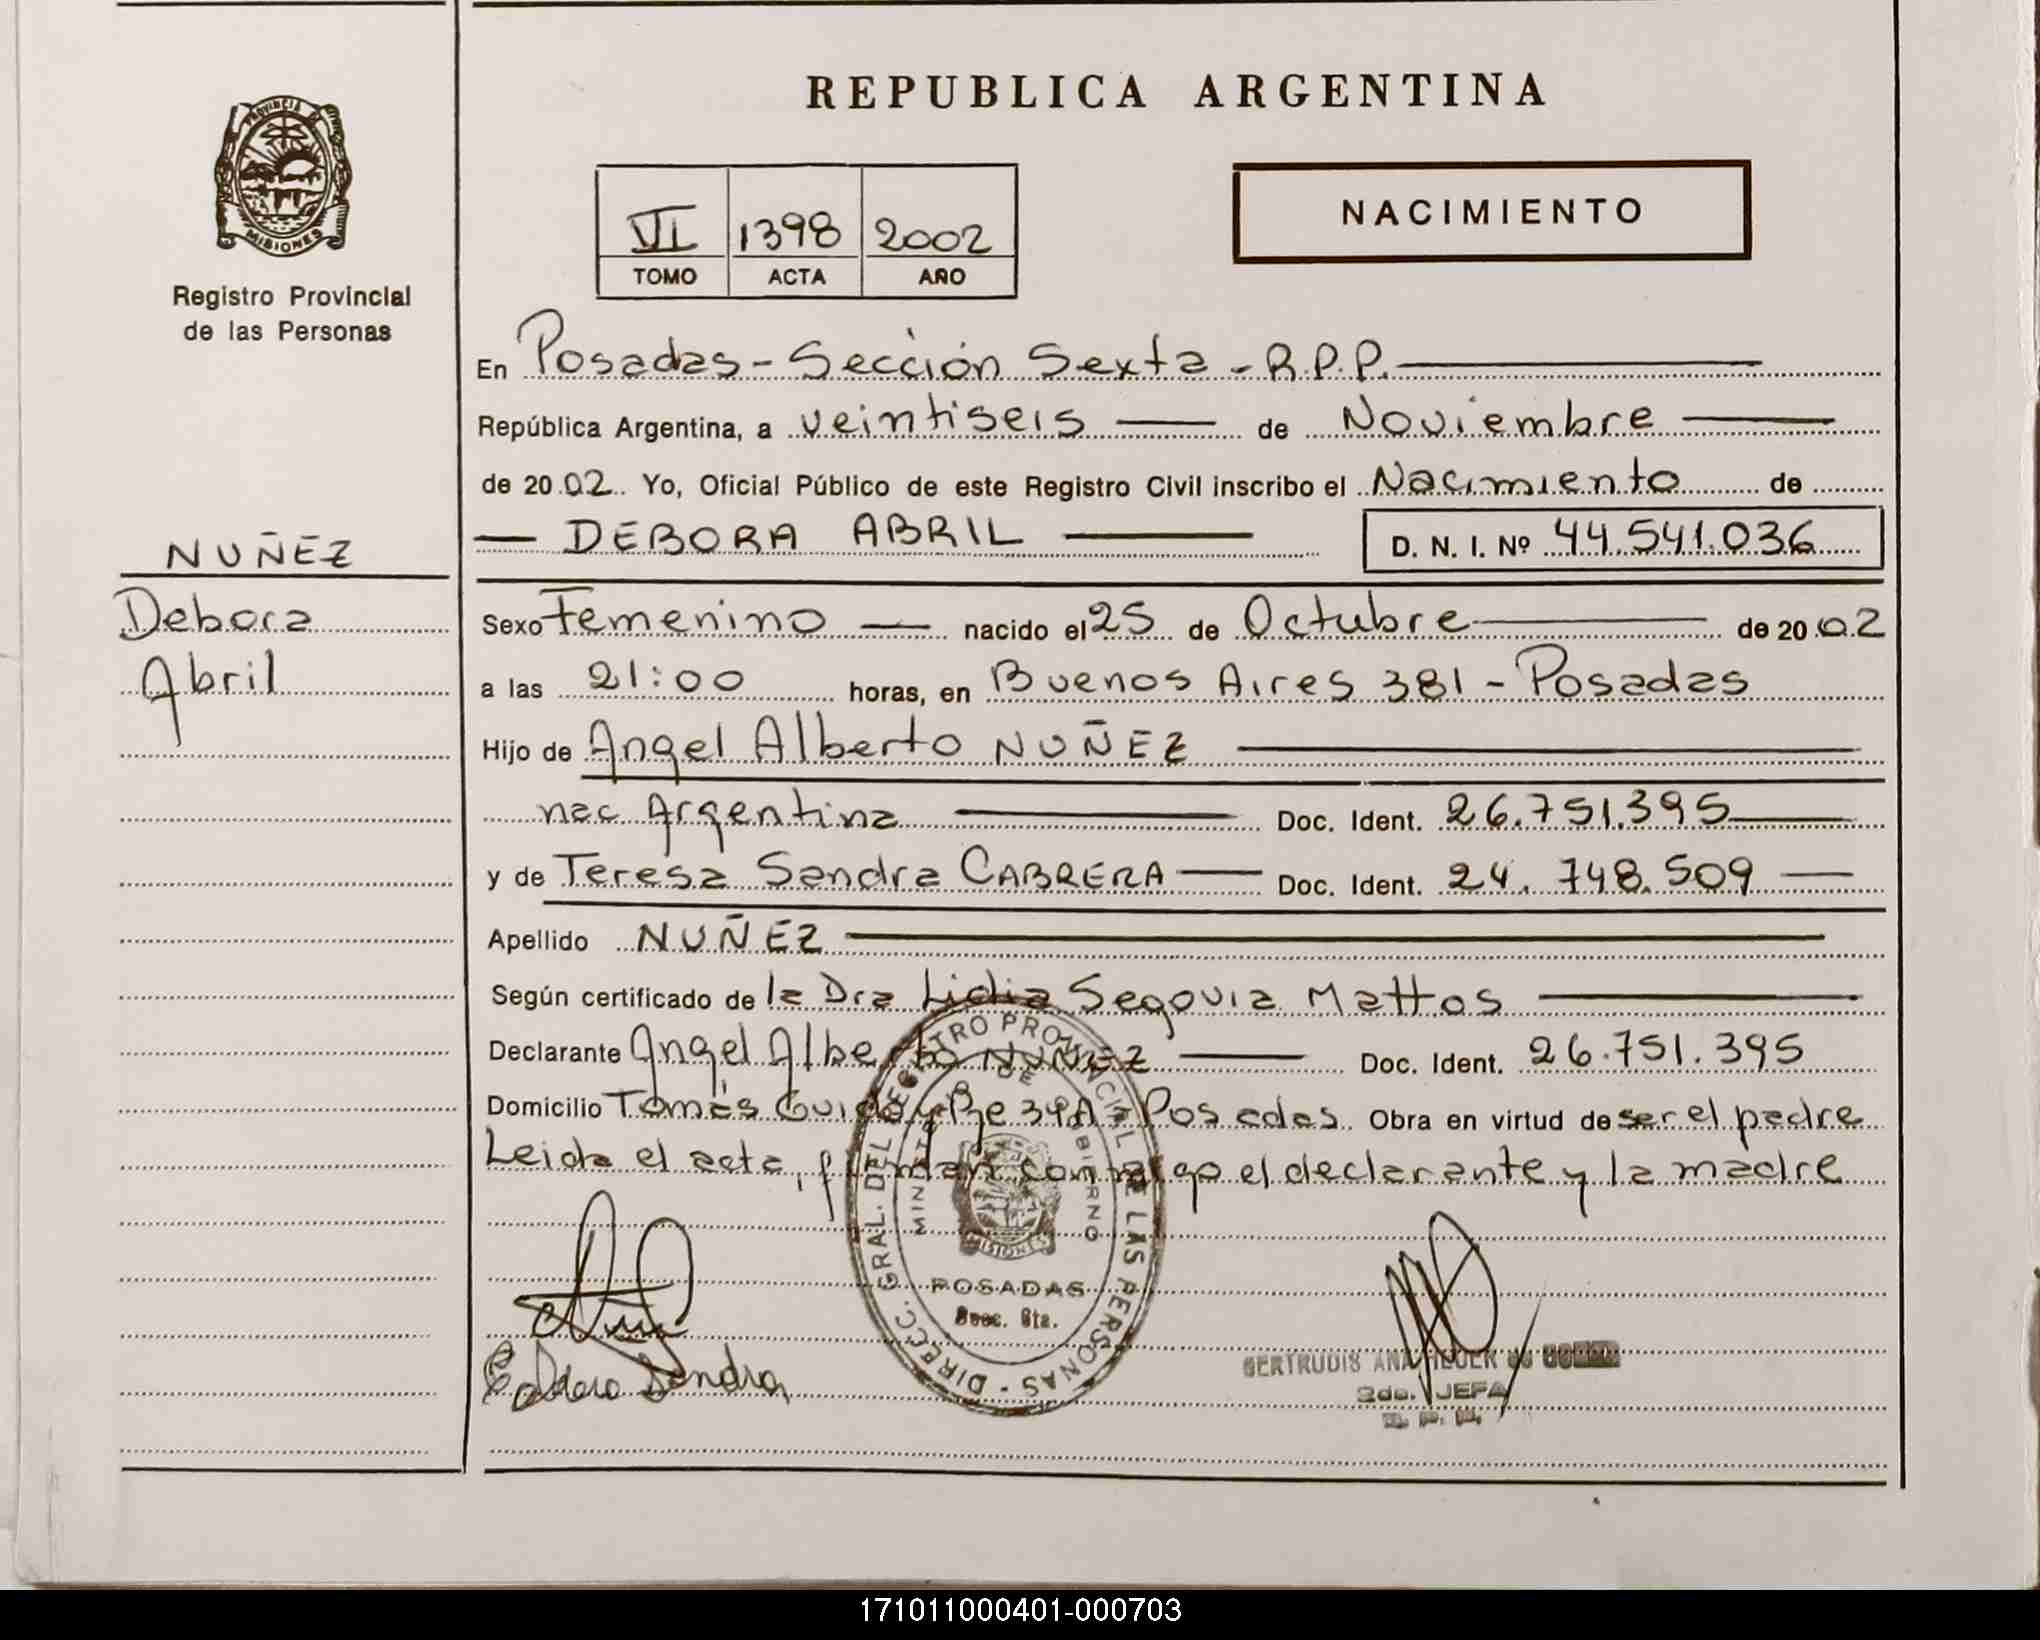 REPUBLICA ARGENTINA
PROVINCIA DE
MISIONES
Registro Provincial
de las Personas
VI 1398 2002
TOMO ACTA AÑO
NACIMIENTO
En Posadas - Sección Sexta - R.P.P.
República Argentina, a veintiseis de Noviembre
de 2002. Yo, Oficial Público de este Registro Civil inscribo el Nacimiento de
DEBORA ABRIL D. N. I. Nº 44.541.036
NUÑEZ
Debora
Abril
Sexo Femenino nacido el 25 de Octubre de 2002
a las 21:00 horas, en Buenos Aires 381 - Posadas
Hijo de Angel Alberto NUÑEZ
nac Argentina Doc. Ident. 26.751.395
y de Teresa Sandra CABRERA Doc. Ident. 24.748.509
Apellido NUÑEZ
Según certificado de la Dra Lidia Segovia Mattos
Declarante Angel Alberto NUÑEZ Doc. Ident. 26.751.395
Domicilio Tomás Guido y Posadas. Obra en virtud de ser el padre
Leida el acta, firman conmigo el declarante y la madre
DIRECC. GRAL. DEL REGISTRO PROVINCIAL DE LAS PERSONAS
MINISTERIO DE GOBIERNO
MISIONES
POSADAS
Secc. 6ta.
Sandra
GERTRUDIS ANA
2da. JEFA
R. P. P.
171011000401-000703